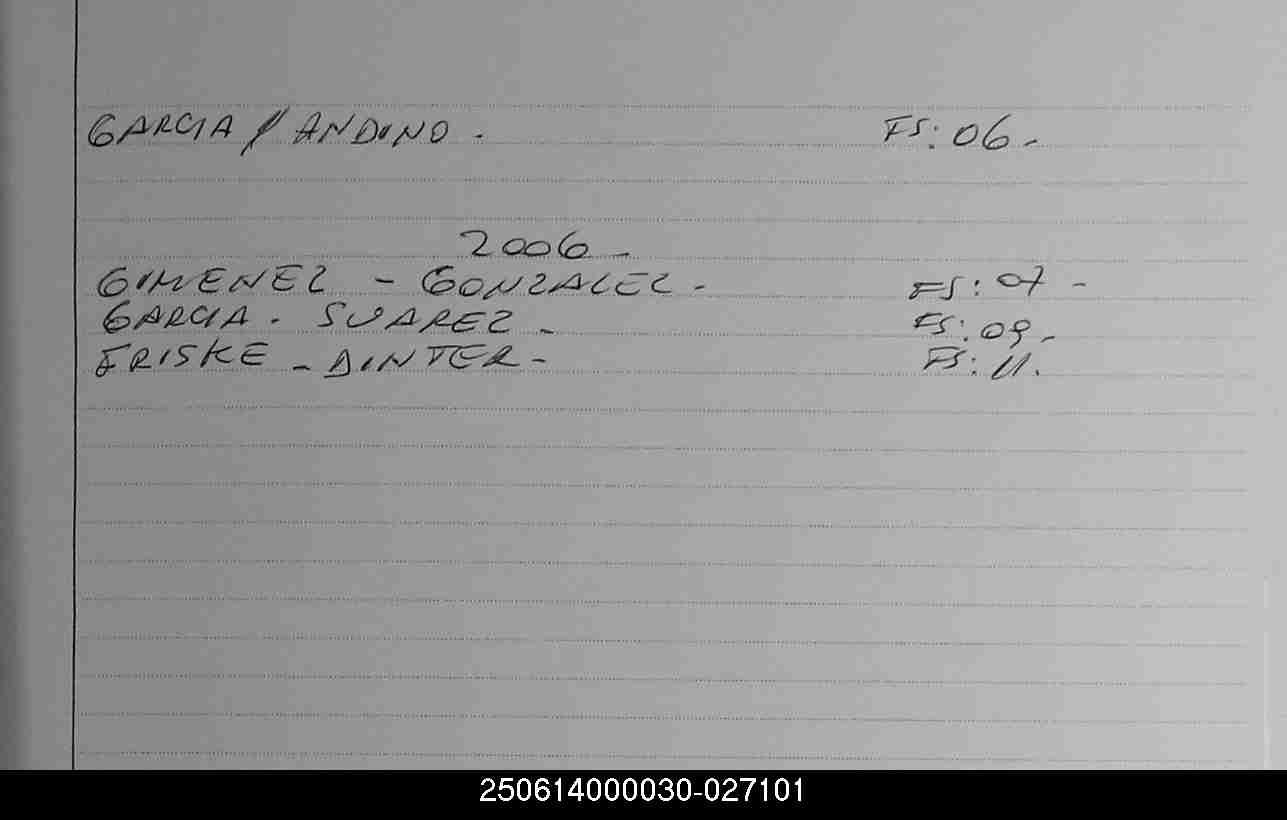 GARCIA / ANDINO. FS: 06.-
2006-
GIMENEZ - GONZALEZ. FS: 07 -
GARCIA. SUAREZ - FS: 09.-
FRISKE - DINTER - FS: 11.
250614000030-027101